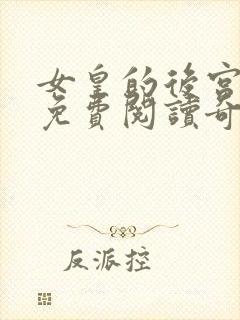 女皇的後宮
免費閱讀奇
反派控